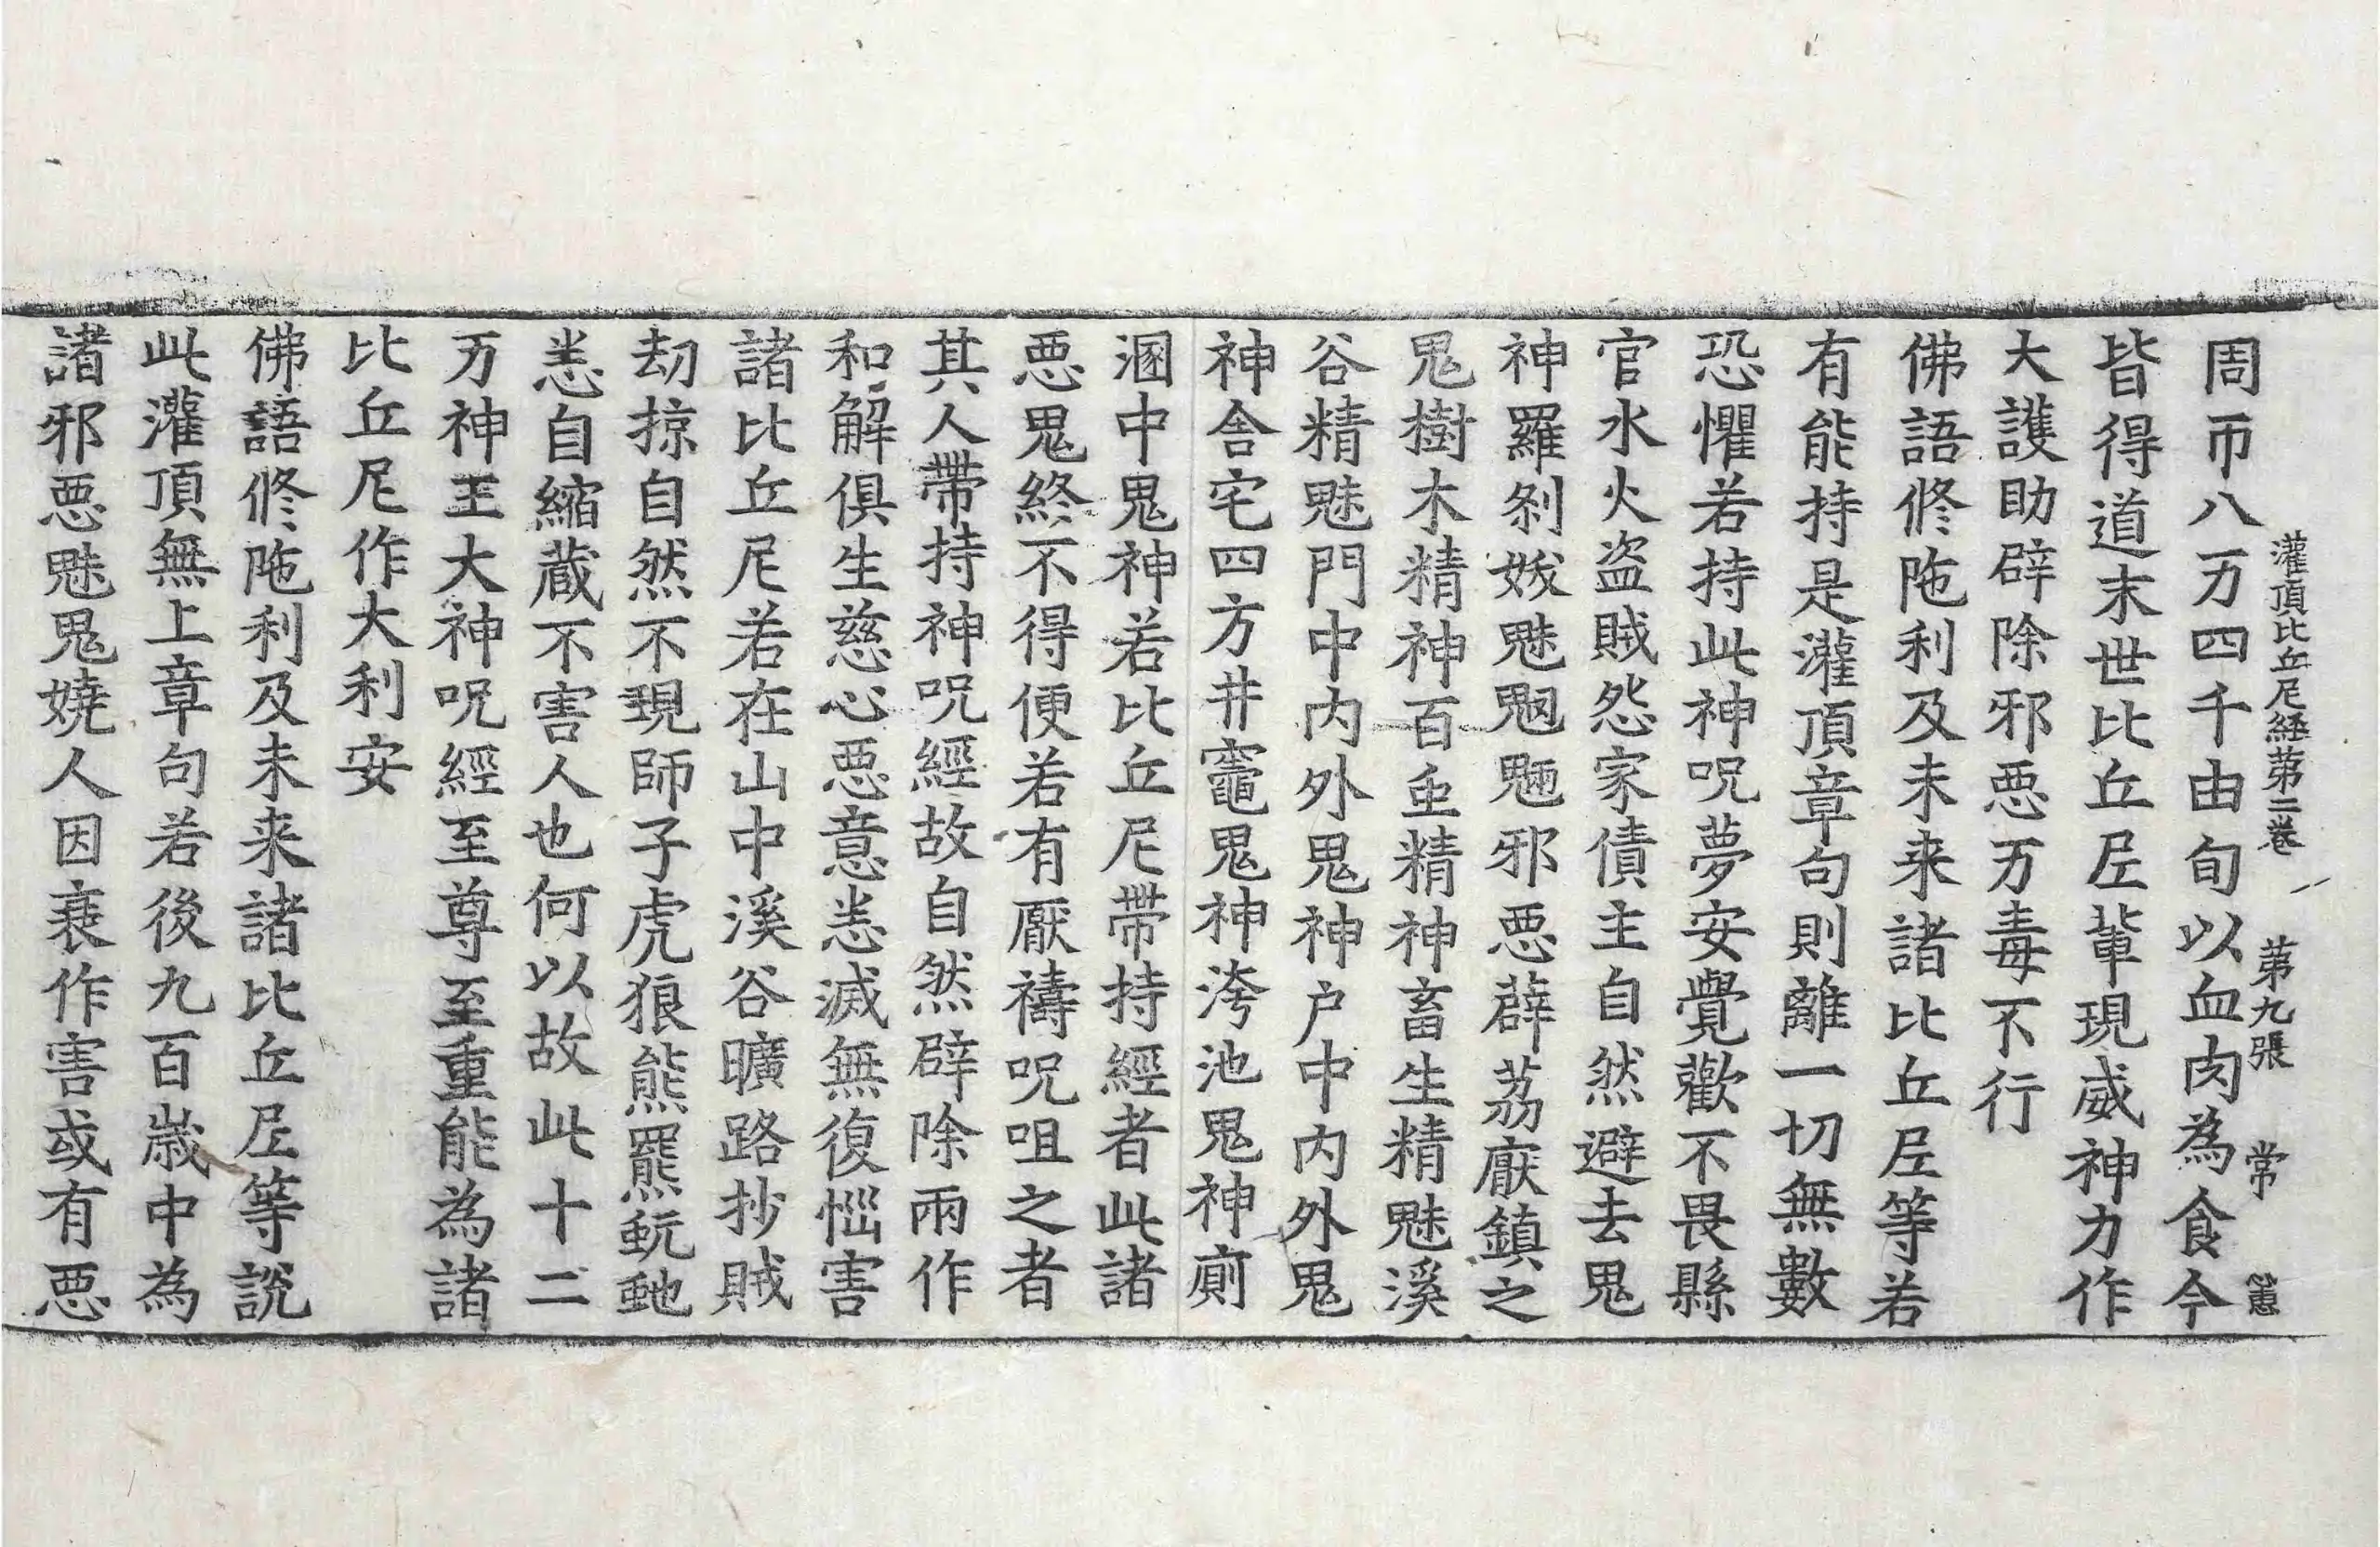 灌頂比丘尼経苐二巻　苐九張　常　惠
周帀八万四千由旬以血肉為食今
皆得道末世比丘𡰱軰現威神力作
大護助辟除邪惡万毒不行
佛語修陁利及未来諸比丘𡰱等若
有能持是灌頂章句則離一切無數
恐懼若持此神呪夢安覺歡不畏縣
官水火盗賊怨家債主自然避去鬼
神羅剎妭魅魍魎邪惡薜荔厭鎮之
鬼樹木精神百虫精神畜生精魅溪
谷精魅門中内外鬼神户中内外鬼
神舍宅四方井竈鬼神洿池鬼神廁
溷中鬼神若比丘尼帶持經者此諸
惡鬼終不得便若有厭禱呪咀之者
其人帶持神呪經故自然辟除兩作
和解俱生慈心惡意恙滅無復惱害
諸比丘尼若在山中溪谷曠路抄賊
劫掠自然不現師子虎狼熊羆蚖虵
恙自縮蔵不害人也何以故此十二
万神王大神呪經至尊至重能為諸
比丘尼作大利安
佛語修陁利及未来諸比丘𡰱等說
此灌頂無上章句若後九百歳中為
諸邪惡魅鬼嬈人因衰作害或有惡